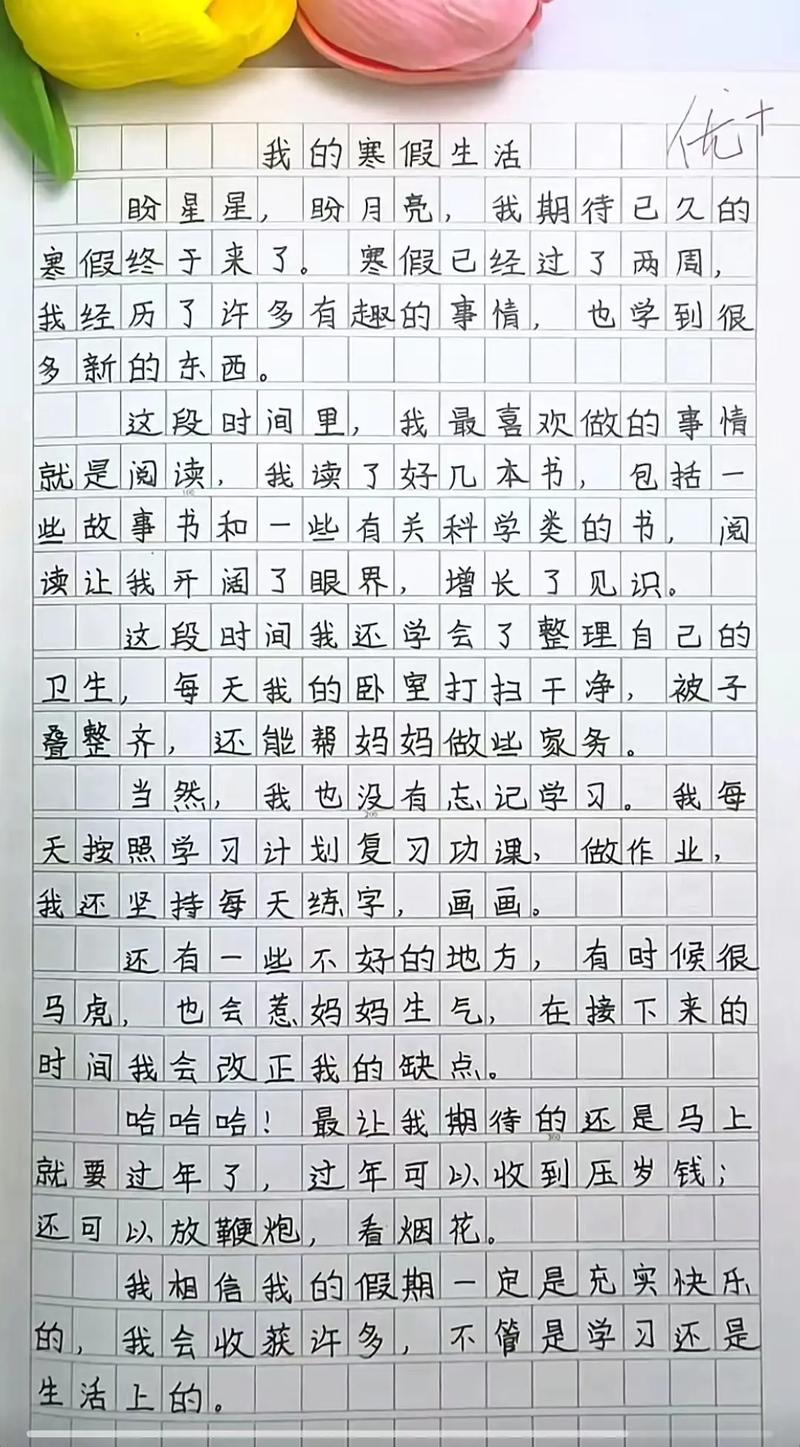 优+
我的寒假生活
盼星星，盼月亮，我期待已久的
寒假终于来了。寒假已经过了两周，
我经历了许多有趣的事情，也学到很
多新的东西。
这段时间里，我最喜欢做的事情
就是阅读，我读了好几本书，包括一
些故事书和一些有关科学类的书，阅
读让我开阔了眼界，增长了见识。
这段时间我还学会了整理自己的
卫生，每天我的卧室打扫干净，被子
叠整齐，还能帮妈妈做些家务。
当然，我也没有忘记学习。我每
天按照学习计划复习功课，做作业，
我还坚持每天练字，画画。
还有一些不好的地方，有时候很
马虎，也会惹妈妈生气，在接下来的
时间我会改正我的缺点。
哈哈哈！最让我期待的还是马上
就要过年了，过年可以收到压岁钱；
还可以放鞭炮，看烟花。
我相信我的假期一定是充实快乐
的，我会收获许多，不管是学习还是
生活上的。